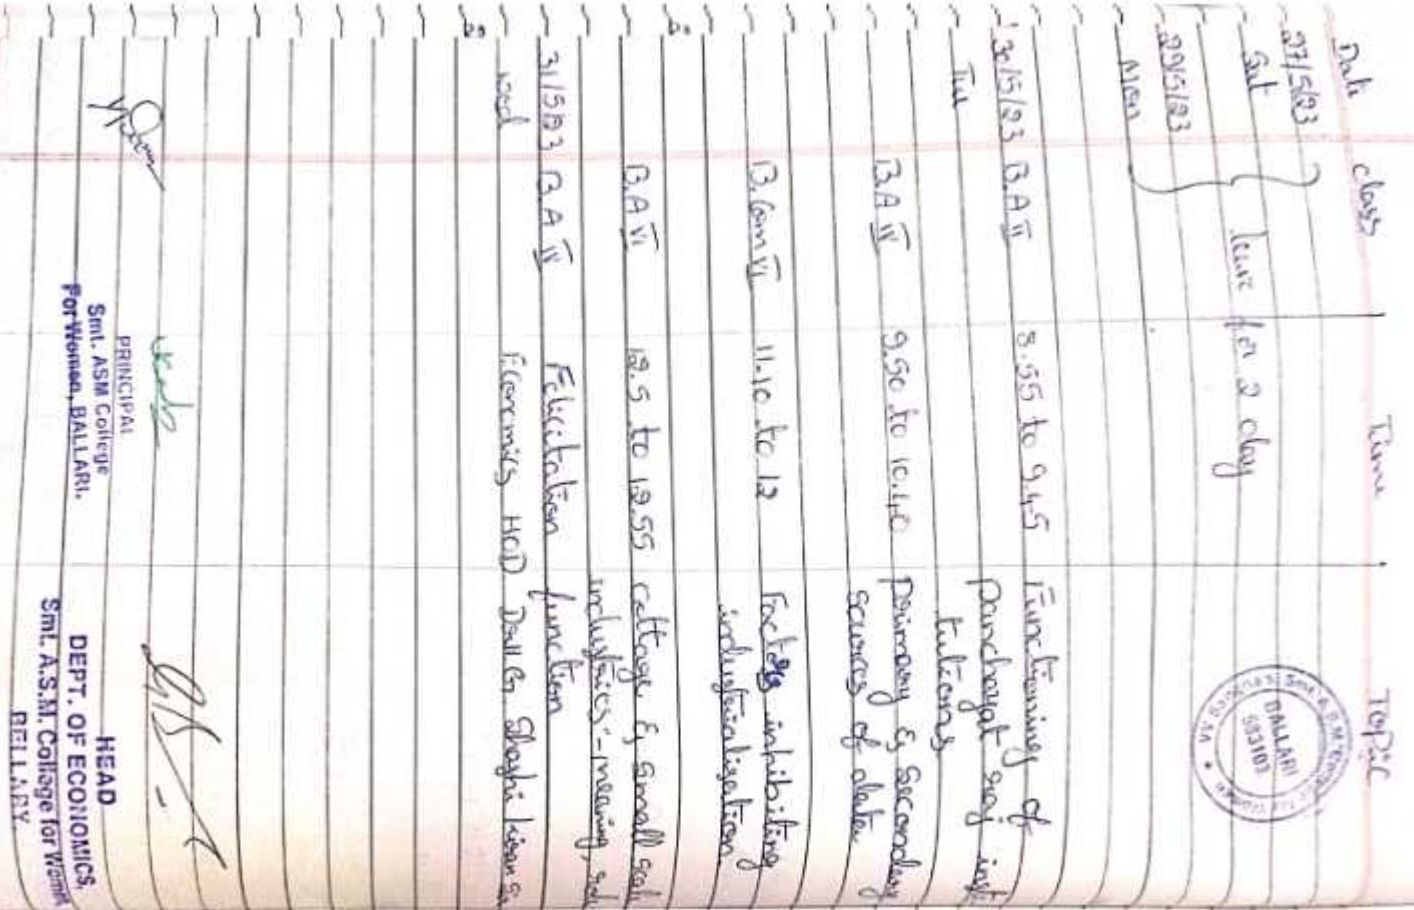 Date class Time Topic
27/5/23
Sat
leave for 2 day
29/5/23
Mon
30/5/23 B.A II 8.55 to 9.45 Functioning of
Tue panchayat raj insti
tutions
B.A IV 9.50 to 10.40 primary & secondary
sources of data
B.Com VI 11.10 to 12 Factors inhibiting
industrialization
B.A VI 12.5 to 12.55 cottage & small scale
industries:-meaning,
31/5/23 B.A IV Felicitation function
wed Economics HOD
BALLARI
583103
PRINCIPAL
Smt. ASM College
For Women, BALLARI.
HEAD
DEPT. OF ECONOMICS.
Smt. A.S.M. College for Women
BELLARY